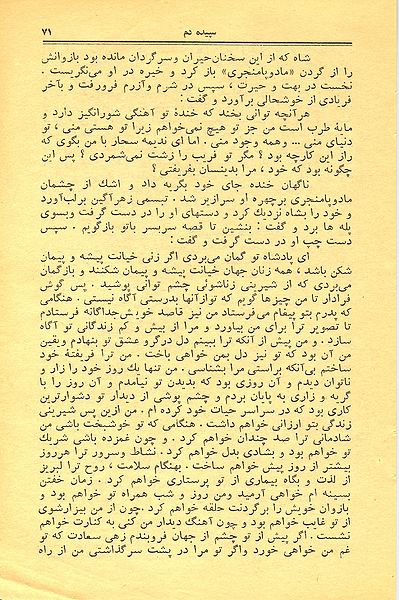 سپیده دم ۷۱
شاه که از این سخنان حیران وسرگردان مانده بود بازوانش
را از گردن «مادوپامنجری» باز کرد و خیره در او می‌نگریست .
نخست در بهت و حیرت ، سپس در شرم وآزرم فرورفت و بآخر
فریادی از خوشحالی برآورد و گفت :
هرآنچه توانی بخند که خندهٔ تو آهنگی شورانگیز دارد و
مایهٔ طرب است من جز تو هیچ نمی‌خواهم زیرا تو هستی منی ، تو
دنیای منی ... وهمه وجود منی . اما ای ندیمه سحار با من بگوی که
راز این کارچه بود ؟ مگر تو فریب را زشت نمی‌شمردی ؟ پس این
چگونه بود که خود ، مرا بدینسان بفریفتی ؟
ناگهان خنده جای خود بگریه داد و اشك از چشمان
مادوپامنجری برچهره او سرازیر شد . تبسمی زهرآگین برلب‌آورد
و خود را بشاه نزدیك کرد و دستهای او را در دست گرفت وبسوی
پله ها برد و گفت : بنشین تا قصه سربسر باتو بازگویم . سپس
دست چپ او در دست گرفت و گفت :
ای پادشاه تو گمان می‌بردی اگر زنی خیانت پیشه و پیمان
شکن باشد ، همه زنان جهان خیانت پیشه و پیمان شکنند و بازگمان
می‌بردی که از شیرینی زناشوئی چشم توانی پوشید . پس گوش
فرادار تا من چیزها گویم که توازآنها بدرستی آگاه نیستی . هنگامی
که پدرم بتو پیغام می‌فرستاد من نیز قاصد خویش جداگانه فرستادم
تا تصویر ترا برای من بیاورد و مرا از بیش و کم زندگانی تو آگاه
سازد . و من پیش از آنکه ترا ببینم دل درگرو عشق تو بنهادم ویقین
من آن بود که تو نیز دل بمن خواهی باخت . من ترا فریفتهٔ خود
ساختم بی‌آنکه براستی مرا بشناسی . من تنها یك روز خود را زار و
ناتوان دیدم و آن روزی بود که بدیدن تو نیامدم و آن روز را با
گریه و زاری به پایان بردم و چشم پوشی از دیدار تو دشوارترین
کاری بود که در سراسر حیات خود کرده ام . من ازین پس شیرینی
زندگی بتو ارزانی خواهم داشت . هنگامی که تو خوشبخت باشی من
شادمانی ترا صد چندان خواهم کرد . و چون غمزده باشی شریك
تو خواهم بود و بشادی بدل خواهم کرد . نشاط وسرور ترا هرروز
بیشتر از روز پیش خواهم ساخت . بهنگام سلامت ، روح ترا لبریز
از لذت و بگاه بیماری از تو پرستاری خواهم کرد . زمان خفتن
بسینه ام خواهی آرمید ومن روز و شب همراه تو خواهم بود و
بازوان خویش را برگردنت حلقه خواهم کرد . چون از من بیزارشوی
از تو غایب خواهم بود و چون آهنگ دیدار من کنی به کنارت خواهم
نشست . اگر پیش از تو چشم از جهان فروبندم زهی سعادت که تو
غم من خواهی خورد واگر تو مرا در پشت سرگذاشتی من از راه